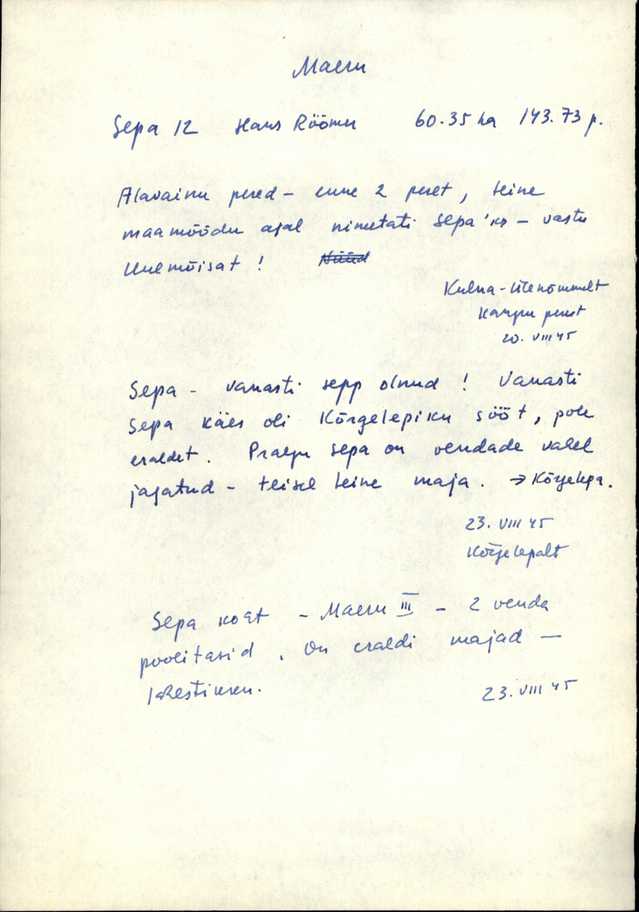 Maeru
Sepa 12 Hans Rõõmu 60.35 ha 143.73 r.
Alavainu pered – enne 2 peret, teine
maamõõdu ajal nimetati Sepa'ks – vastu
Uuemõisat! Nüüd
Kulna-Ülenõmmelt
Kangru perest
20. VIII 45
Sepa – vanasti sepp olnud! Vanasti
Sepa käes oli Kõrgelepiku sööt, pole
eraldet. Praegu Sepa on vendade vahel
jagatud – teisel teine maja. → Kõrgelepa.
23. VIII 45
Kõrgelepalt
Sepa koät – Maeru III – 2 venda
poolitasid. On eraldi majad –
lähestikku.
23. VIII 45